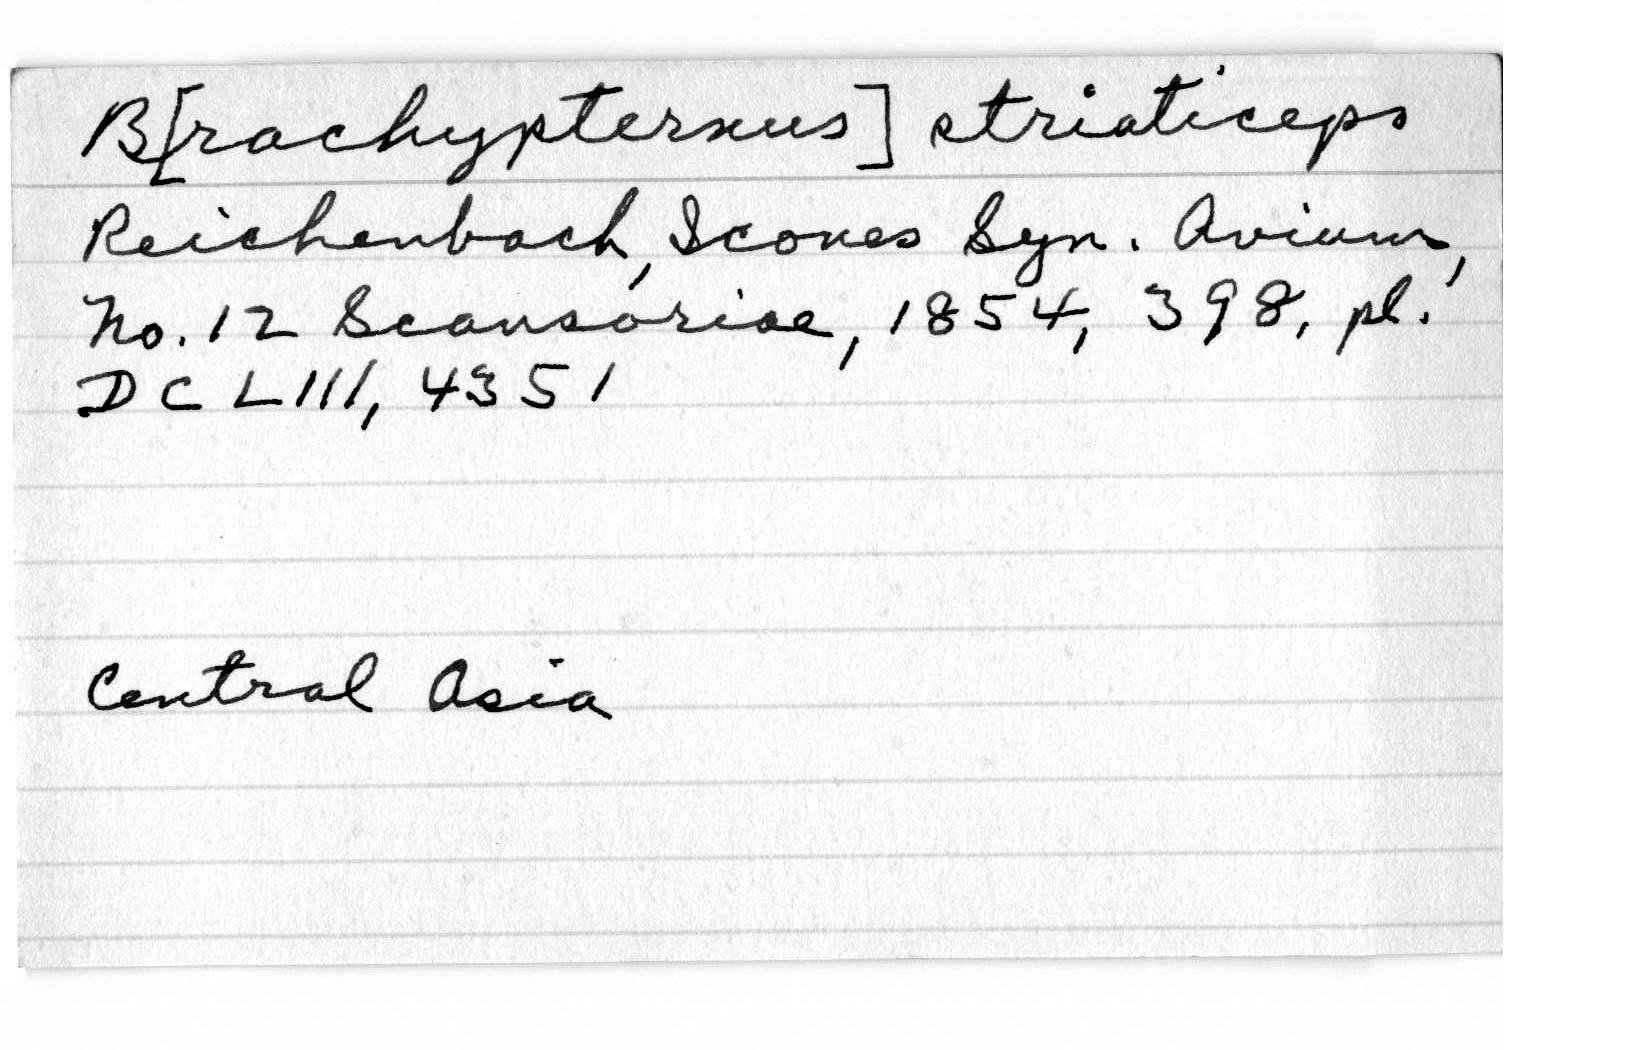 B[rachypternus] striaticeps
Reichenbach, Icones Syn. Avium,
No. 12 Scansoriae, 1854, 398, pl.
DCLIII, 4351
Central Asia